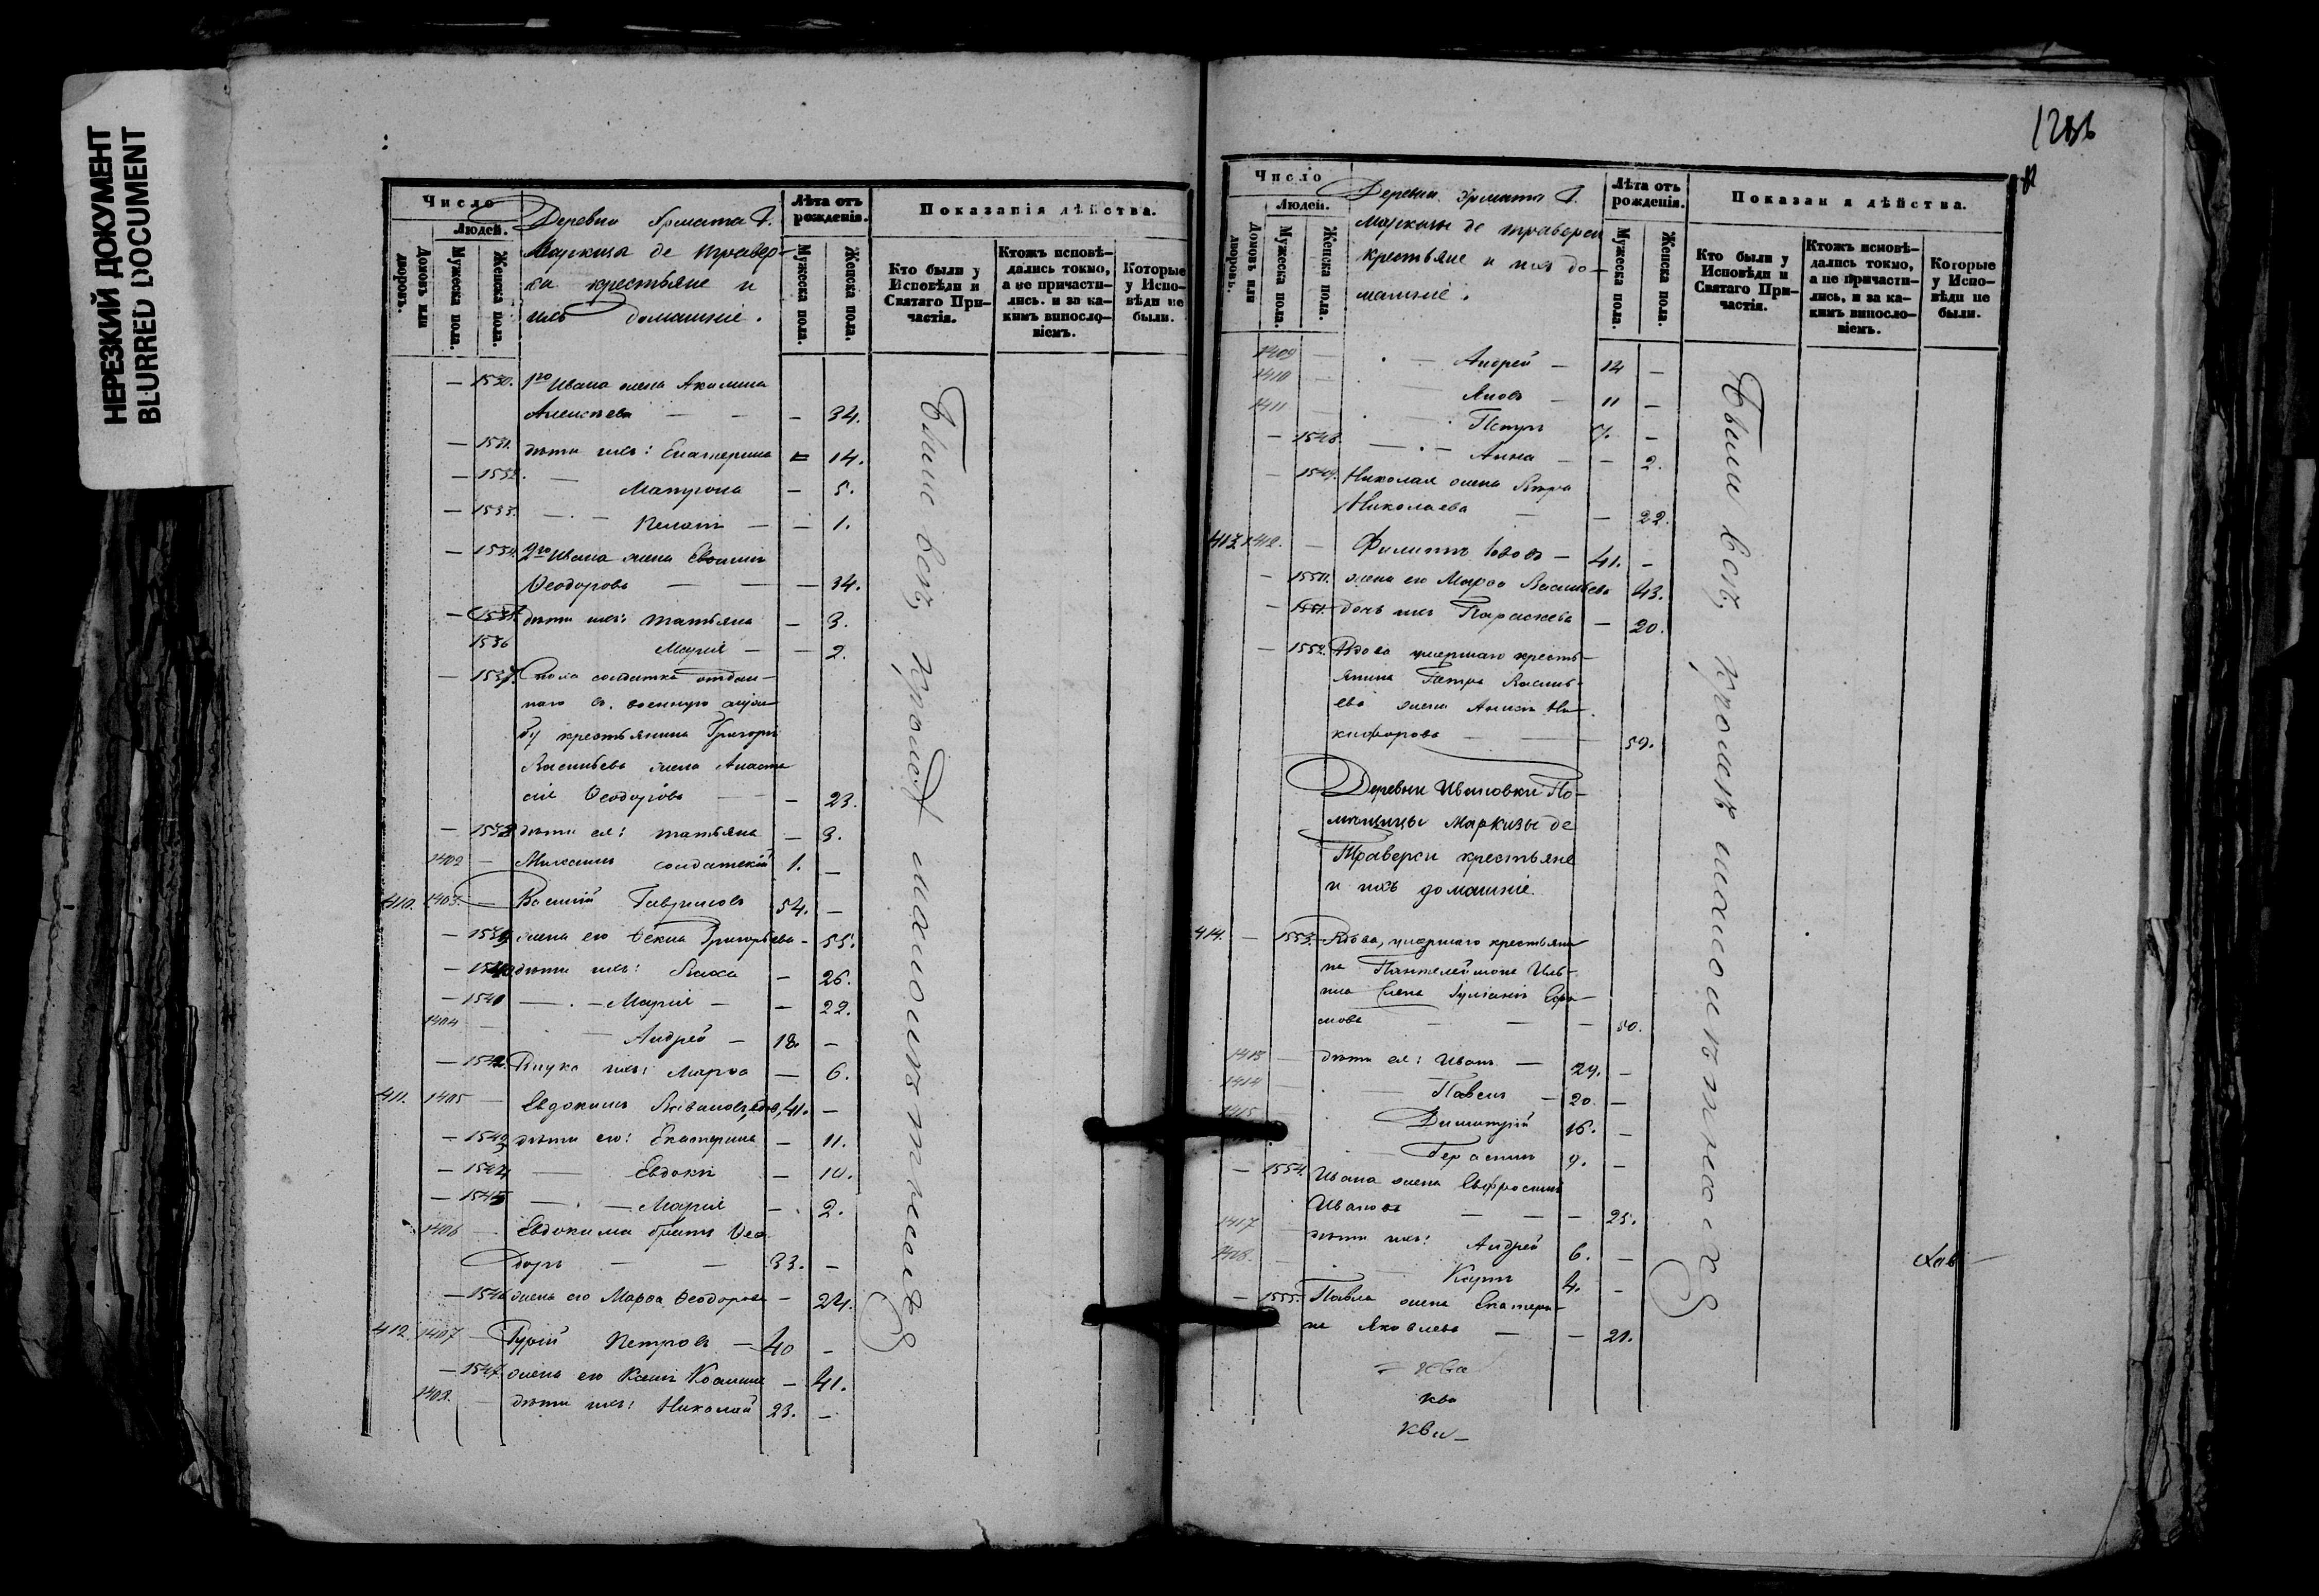 НЕРЕЗКИЙ ДОКУМЕНТ
BLURRED DOCUMENT
Число
Людей.
Домовъ или дворовъ.
Мужеска пола.
Женска пола.
Деревни Ермата Г.
Маркиза де Травер-
си крестьяне и
ихъ домашніе.
Лѣта отъ рожденія.
Мужеска пола.
Женска пола.
Показанія дѣйства.
Кто были у Исповѣди и Святаго При-частія.
Ктожъ исповѣ-дались токмо, а не причасти-лись. и за ка-кимъ винословіемъ.
Которые у Испо-вѣди не были.
— 1530. 1го Ивана жена Акилина
Алексѣева — — — 34.
— 1531. дѣти ихъ: Екатерина — 14.
— 1532. — Матрона — 5.
— 1533. — Пелагія — 1.
— 1534. 2го Ивана жена Евфимія
Ѳеодорова — — — 34.
— 1535. дѣти ихъ: Татьяна — 3.
1536 Марія — — 2.
— 1537. солдатка отдан-
наго въ военную служ-
бу крестьянина Григорія
Васильева жена Анаста-
сія Ѳеодорова — — 23.
— 1538 дѣти ея: Татьяна — 3.
1402 — Михаилъ солдатскій 1. —
410. 1403. — Василій Гавриловъ 54. —
— 1539 жена его Ѳекла Григорьева — 55.
— 1540 дѣти ихъ: — 26.
— 1541 — Марія — — 22.
1404 — Андрей — 18. —
— 1542 Внука ихъ: Марфа — 6.
411. 1405 — Евдокимъ вдов, 41. —
— 1543 дѣти его: Екатерина — 11.
— 1544 — Евдокія — 10.
— 1545 — Марія — 2.
1406 — Евдокима братъ Ѳео-
доръ — — 33. —
— 1546 жена его Марфа Ѳеодорова — 24.
412. 1407 — Гурій Петровъ — 40 —
— 1547 жена его Ксенія — 41.
1408. — дѣти ихъ: Николай 23. —
Были всѣ, кромѣ малолѣтныхъ
Число
Людей.
Домовъ или дворовъ.
Мужеска пола.
Женска пола.
Деревни Ермата Г.
Маркизы де Траверси
крестьяне и ихъ до-
машніе.
Лѣта отъ рожденія.
Мужеска пола.
Женска пола.
Показан я дѣйства.
Кто были у Исповѣди и Святаго При-частія.
Ктожъ исповѣ-дались токмо, а не причасти-лись, и за ка-кимъ винословіемъ.
Которые у Испо-вѣди не были.
1409 — Андрей — 14 —
1410 — Яковъ — 11 —
1411 Петръ 7. —
— 1548. — Анна — — 2.
— 1549. Николая жена
Николаева — — 22.
413. 1412. — Филиппъ — 41. —
— 1550. жена его Марфа Васильева 43.
— 1551. дочь ихъ Параскева — 20.
— 1552. Вдова умершаго кресть-
янина Петра Василь-
ева жена Анисія Ни-
кифорова — — 59.
Деревни Ивановки По-
мѣщицы Маркизы де
Траверси крестьяне
и ихъ домашніе.
414. — 1553. Вдова, умершаго крестьяни-
на Пантелеймона Иль-
ина жена Іуліанія Ефи-
мова — — — 50.
1413 — дѣти ея: Иванъ — 29. —
1414 — Павелъ — 20. —
1415 Димитрій 16. —
Герасимъ 9. —
— 1554. Ивана жена Евфросинія
Иванова — — — 25.
1417 — дѣти ихъ: Андрей 6. —
1418. — Карпъ 4. —
— 1555. Павла жена Екатери-
на Яковлева — — 21.
Были всѣ, кромѣ малолѣтныхъ